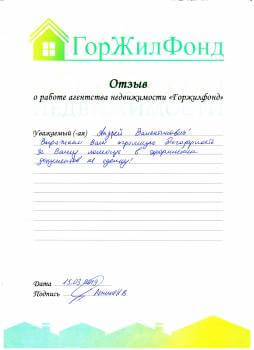 ГорЖилФонд
Отзыв
о работе агентства недвижимости «Горжилфонд»
НЕДВИЖИМОСТИ
Уважаемый (-ая) Андрей Валентинович!
Выражаем Вам огромную благодарность
за Вашу помощь в оформлении
документов на сделку!
Дата 15.03.2019
Подпись